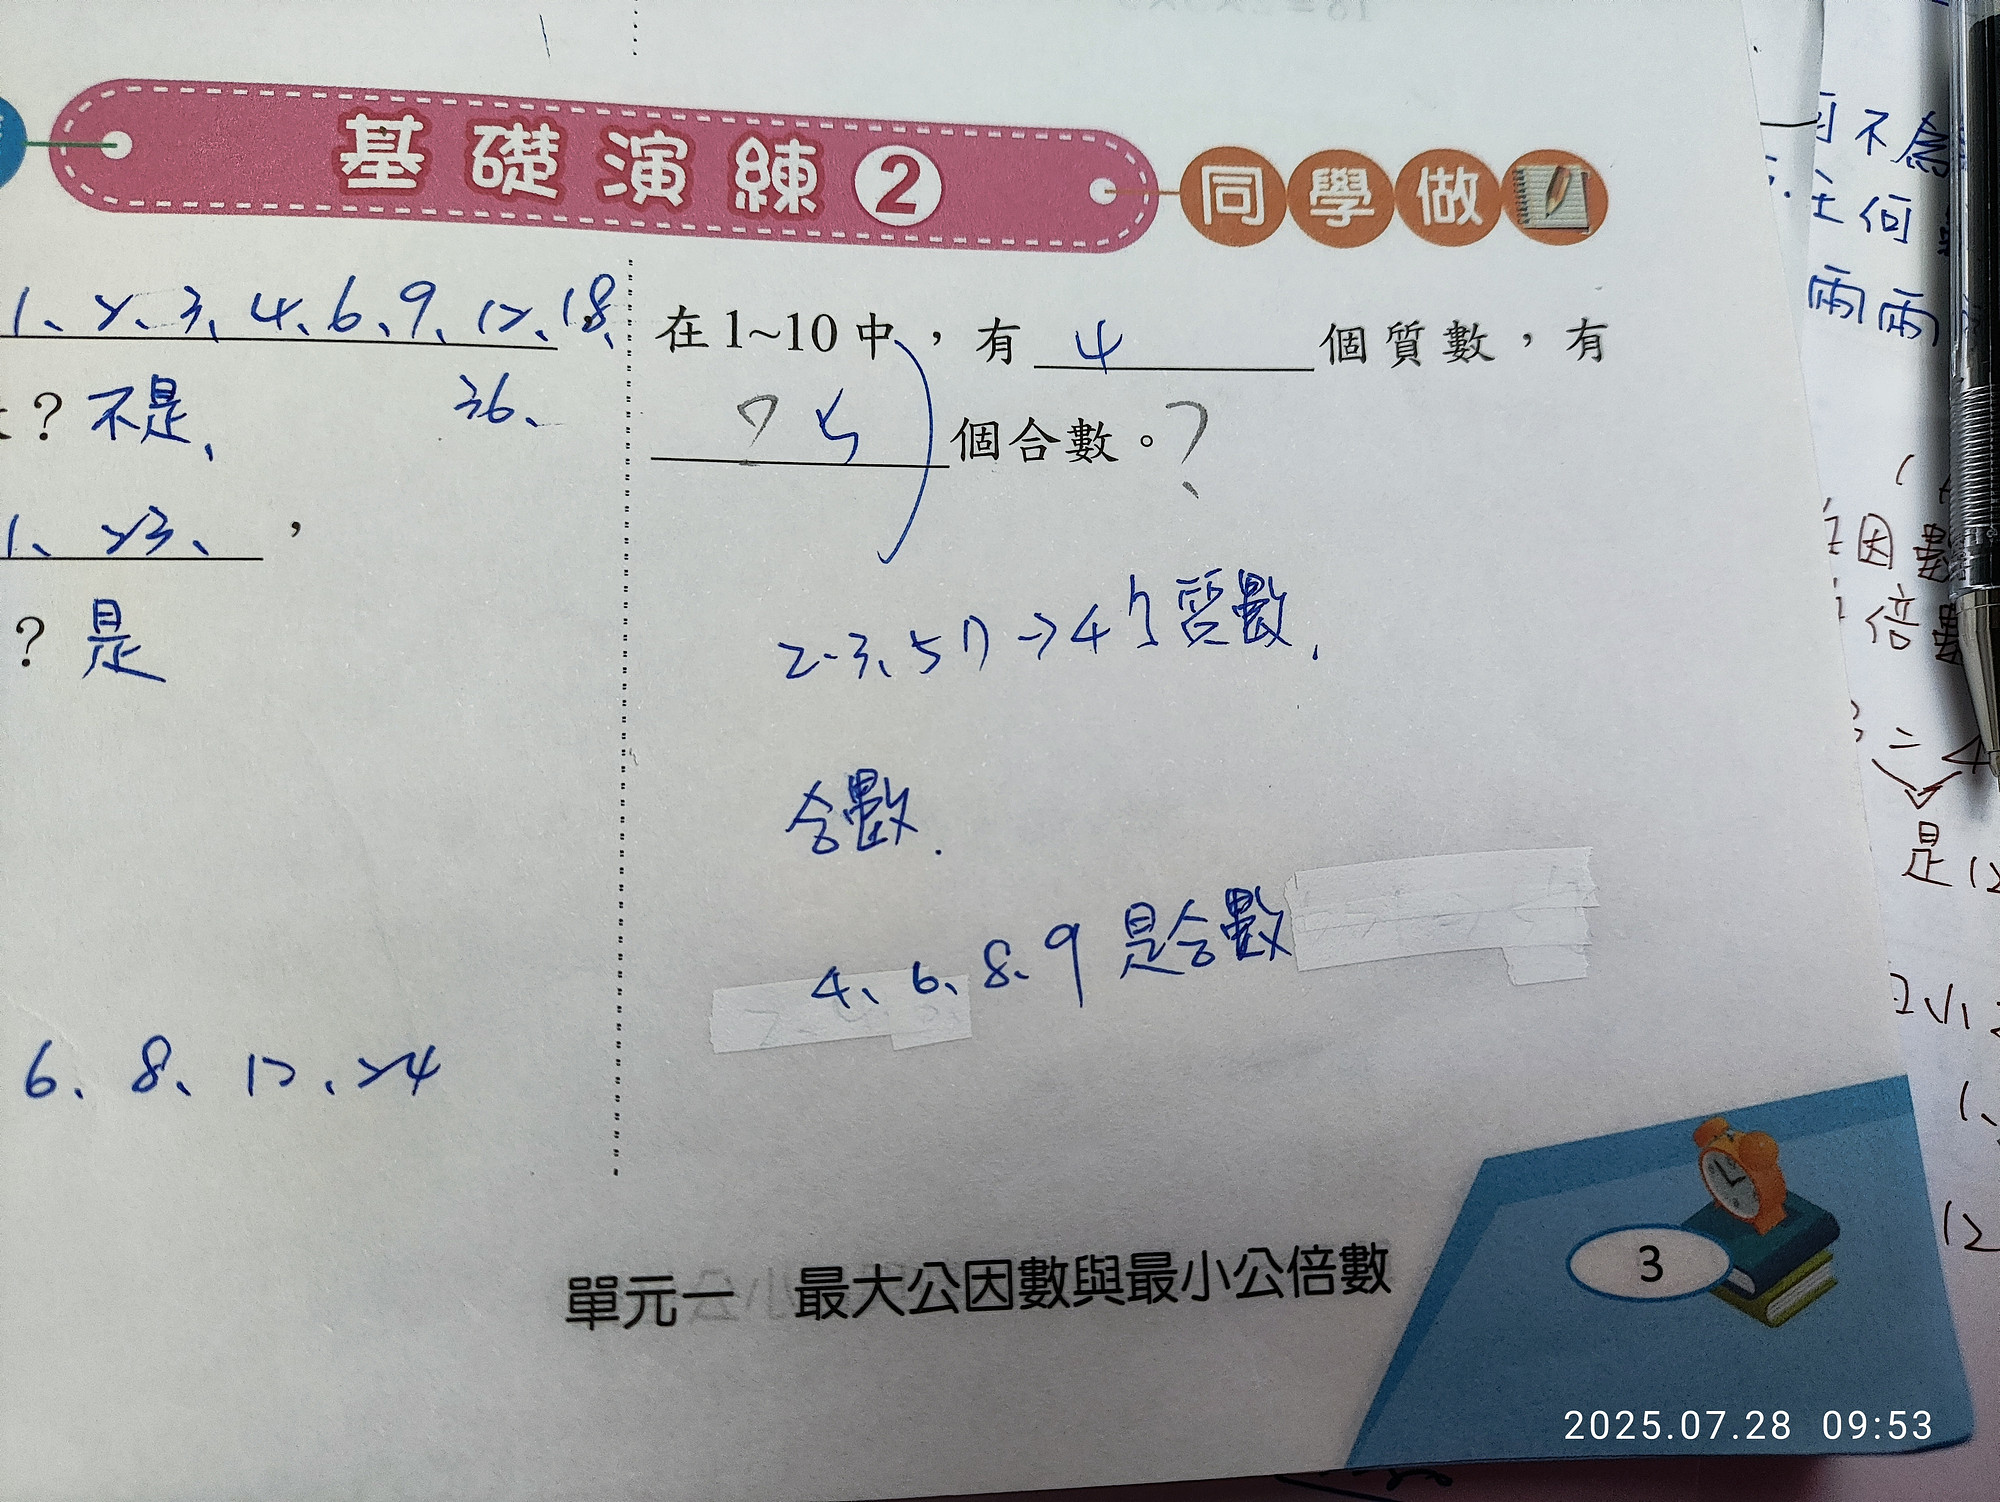 基礎演練2 同學做
1、2、3、4、6、9、12、18、
36、
? 不是、
1、23、,
? 是
6、8、12、24
在1~10中,有 4 個質數,有
? 5 個合數。?
2、3、5、7→4個質數.
合數.
4、6、8、9 是合數
單元一 最大公因數與最小公倍數
3
不為
何
兩兩
因數
倍數
是12
12
2025.07.28 09:53